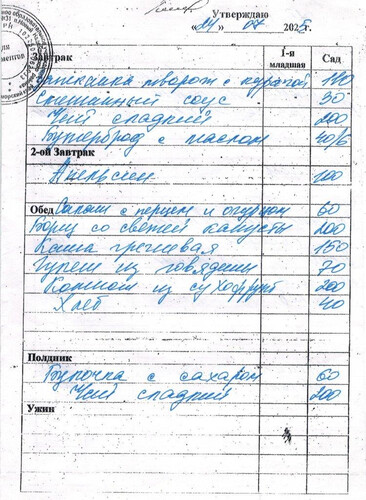 Утверждаю
« » 07 2025г.
Завтрак 1-я младшая Сад
Запеканка творож с курагой 140
Сметанный соус 30
Чай сладкий 200
Бутерброд с маслом 40/5
2-ой Завтрак
Апельсин 100
Обед Салат с перцем и огурцом 60
Борщ со свежей капусты 200
Каша гречневая 150
Гуляш из говядины 70
Компот из сухофрукт 200
Хлеб 40
Полдник
Булочка с сахаром 60
Чай сладкий 200
Ужин